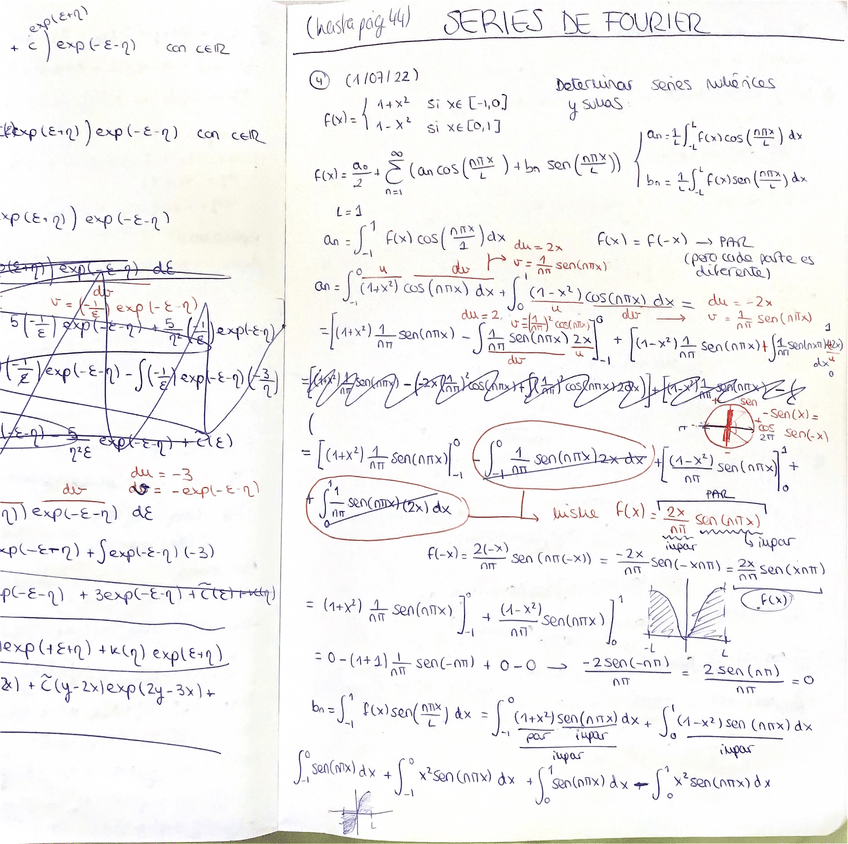 exp(ε+η)
+ c ) exp(-ε-η) con c∈ℝ
exp(ε+η)) exp(-ε-η) con c∈ℝ
xp(ε+η)) exp(-ε-η)
exp(-ε-η) dε
dv
v = (-1/ε) exp(-ε-η)
5(-1/ε) exp(-ε-η) + 5/η² (-1/ε) exp(-ε-η)
(-1/ε) exp(-ε-η) - ∫(-1/ε) exp(-ε-η) (-3/η)
- 5/η²ε exp(-ε-η) + c̃(ε)
du = -3
dv v = -exp(-ε-η)
η)) exp(-ε-η) dε
xp(-ε+η) + ∫exp(-ε-η) (-3)
p(-ε-η) + 3exp(-ε-η) + c̃(ε)
exp(+ε+η) + κ(η) exp(ε+η)
2x) + c̃(y-2x)exp(2y-3x)+
(hasta pág 44) SERIES DE FOURIER
④ (1/07/22) Determinar series numéricas
y sumas
f(x) = { 1+x² si x∈[-1,0]
1-x² si x∈[0,1]
f(x) = a₀/2 + ∑_{n=1}^{∞} (an cos(nπx/L) + bn sen(nπx/L))
{ an = 1/L ∫_{-L}^{L} f(x)cos(nπx/L) dx
bn = 1/L ∫_{-L}^{L} f(x)sen(nπx/L) dx
L=1
an = ∫_{-1}^{1} f(x) cos(nπx/1) dx
du = 2x
v = 1/nπ sen(nπx)
f(x) = f(-x) → PAR
(pero cada parte es
diferente)
u dv
an = ∫_{-1}^{0} (1+x²) cos(nπx) dx + ∫_{0}^{1} (1-x²) cos(nπx) dx =
u dv
du = -2x
→ v = 1/nπ sen(nπx)
du = 2 v = (1/nπ)² cos(nπx)
= [(1+x²) 1/nπ sen(nπx) - ∫ 1/nπ sen(nπx) 2x]_{-1}^{0} + [(1-x²) 1/nπ sen(nπx) + ∫ 1/nπ sen(nπx)(2x) dx]_{0}^{1}
dv u
= [(1+x²) 1/nπ sen(nπx) - (-2x(1/nπ)² cos(nπx) + ∫(1/nπ)² cos(nπx) 2dx)] + [(1-x²) 1/nπ sen(nπx)
sen
π cos
2π
-sen(x) =
sen(-x)
(
= [(1+x²) 1/nπ sen(nπx)]_{-1}^{0} - ∫_{-1}^{0} 1/nπ sen(nπx) 2x dx + [(1-x²)/nπ sen(nπx)]_{0}^{1} +
+ ∫_{0}^{1} 1/nπ sen(nπx) (2x) dx
PAR
→ misma f(x) = 2x/nπ sen(nπx)
impar impar
f(-x) = 2(-x)/nπ sen(nπ(-x)) = -2x/nπ sen(-xnπ) = 2x/nπ sen(xnπ)
f(x)
= (1+x²) 1/nπ sen(nπx)]_{-1}^{0} + (1-x²)/nπ sen(nπx)]_{0}^{1}
-L L
= 0-(1+1) 1/nπ sen(-nπ) + 0-0 → -2sen(-nπ)/nπ = 2sen(nπ)/nπ = 0
bn = ∫_{-1}^{1} f(x) sen(nπx/L) dx = ∫_{-1}^{0} (1+x²) sen(nπx) dx + ∫_{0}^{1} (1-x²) sen(nπx) dx
par impar
impar impar
∫_{-1}^{0} sen(nπx) dx + ∫_{-1}^{0} x² sen(nπx) dx + ∫_{0}^{1} sen(nπx) dx - ∫_{0}^{1} x² sen(nπx) dx
L